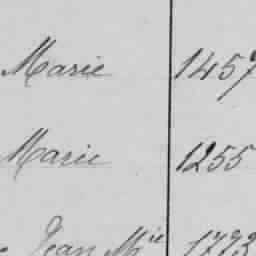 Marie 1457
Marie 1255
Jean Mie 1773